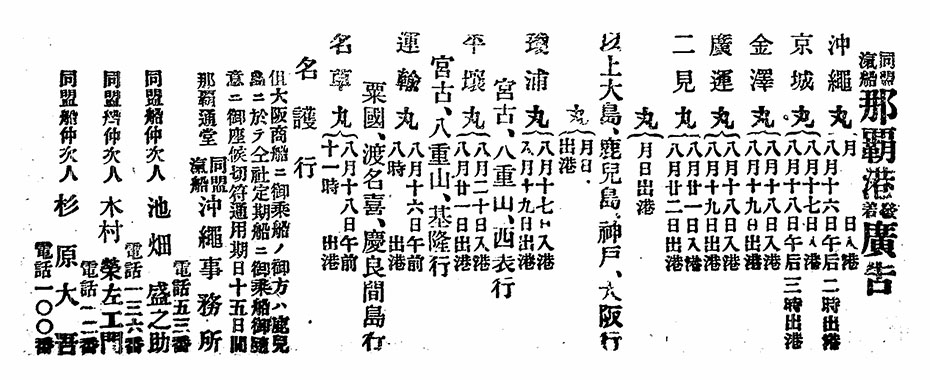 同盟汽船那覇港發着廣告
沖繩丸 月 日入港 八月十六日午后二時出港
京城丸 八月十七日入港 八月十八日午后三時出港
金澤丸 八月十八日入港 八月十九日出港
廣運丸 八月十八日入港 八月十九日出港
二見丸 八月廿一日入港 八月廿二日出港
丸 月日出港
以上大島、鹿兒島、神戸、大阪行
丸 月日 出港
瓊浦丸 八月十七日入港 八月十九日出港
宮古、八重山、西表行
平壤丸 八月二十日入港 八月廿一日出港
宮古、八重山、基隆行
運輸丸 八月十六日午前八時 出港
粟國、渡名喜、慶良間島行
名草丸 八月十八日午前十一時 出港
名護行
但大阪商船ニ御乘船ノ御方ハ鹿兒
島ニ於テ仝社定期船ニ御乘船御隨
意ニ御座候切符通用期日十五日間
那覇通堂 同盟汽船沖繩事務所
電話五三番
同盟船仲次人 池畑盛之助
電話一三六番
同盟船仲次人 木村榮左工門
電話一二番
同盟船仲次人 杉原大吾
電話一〇〇番